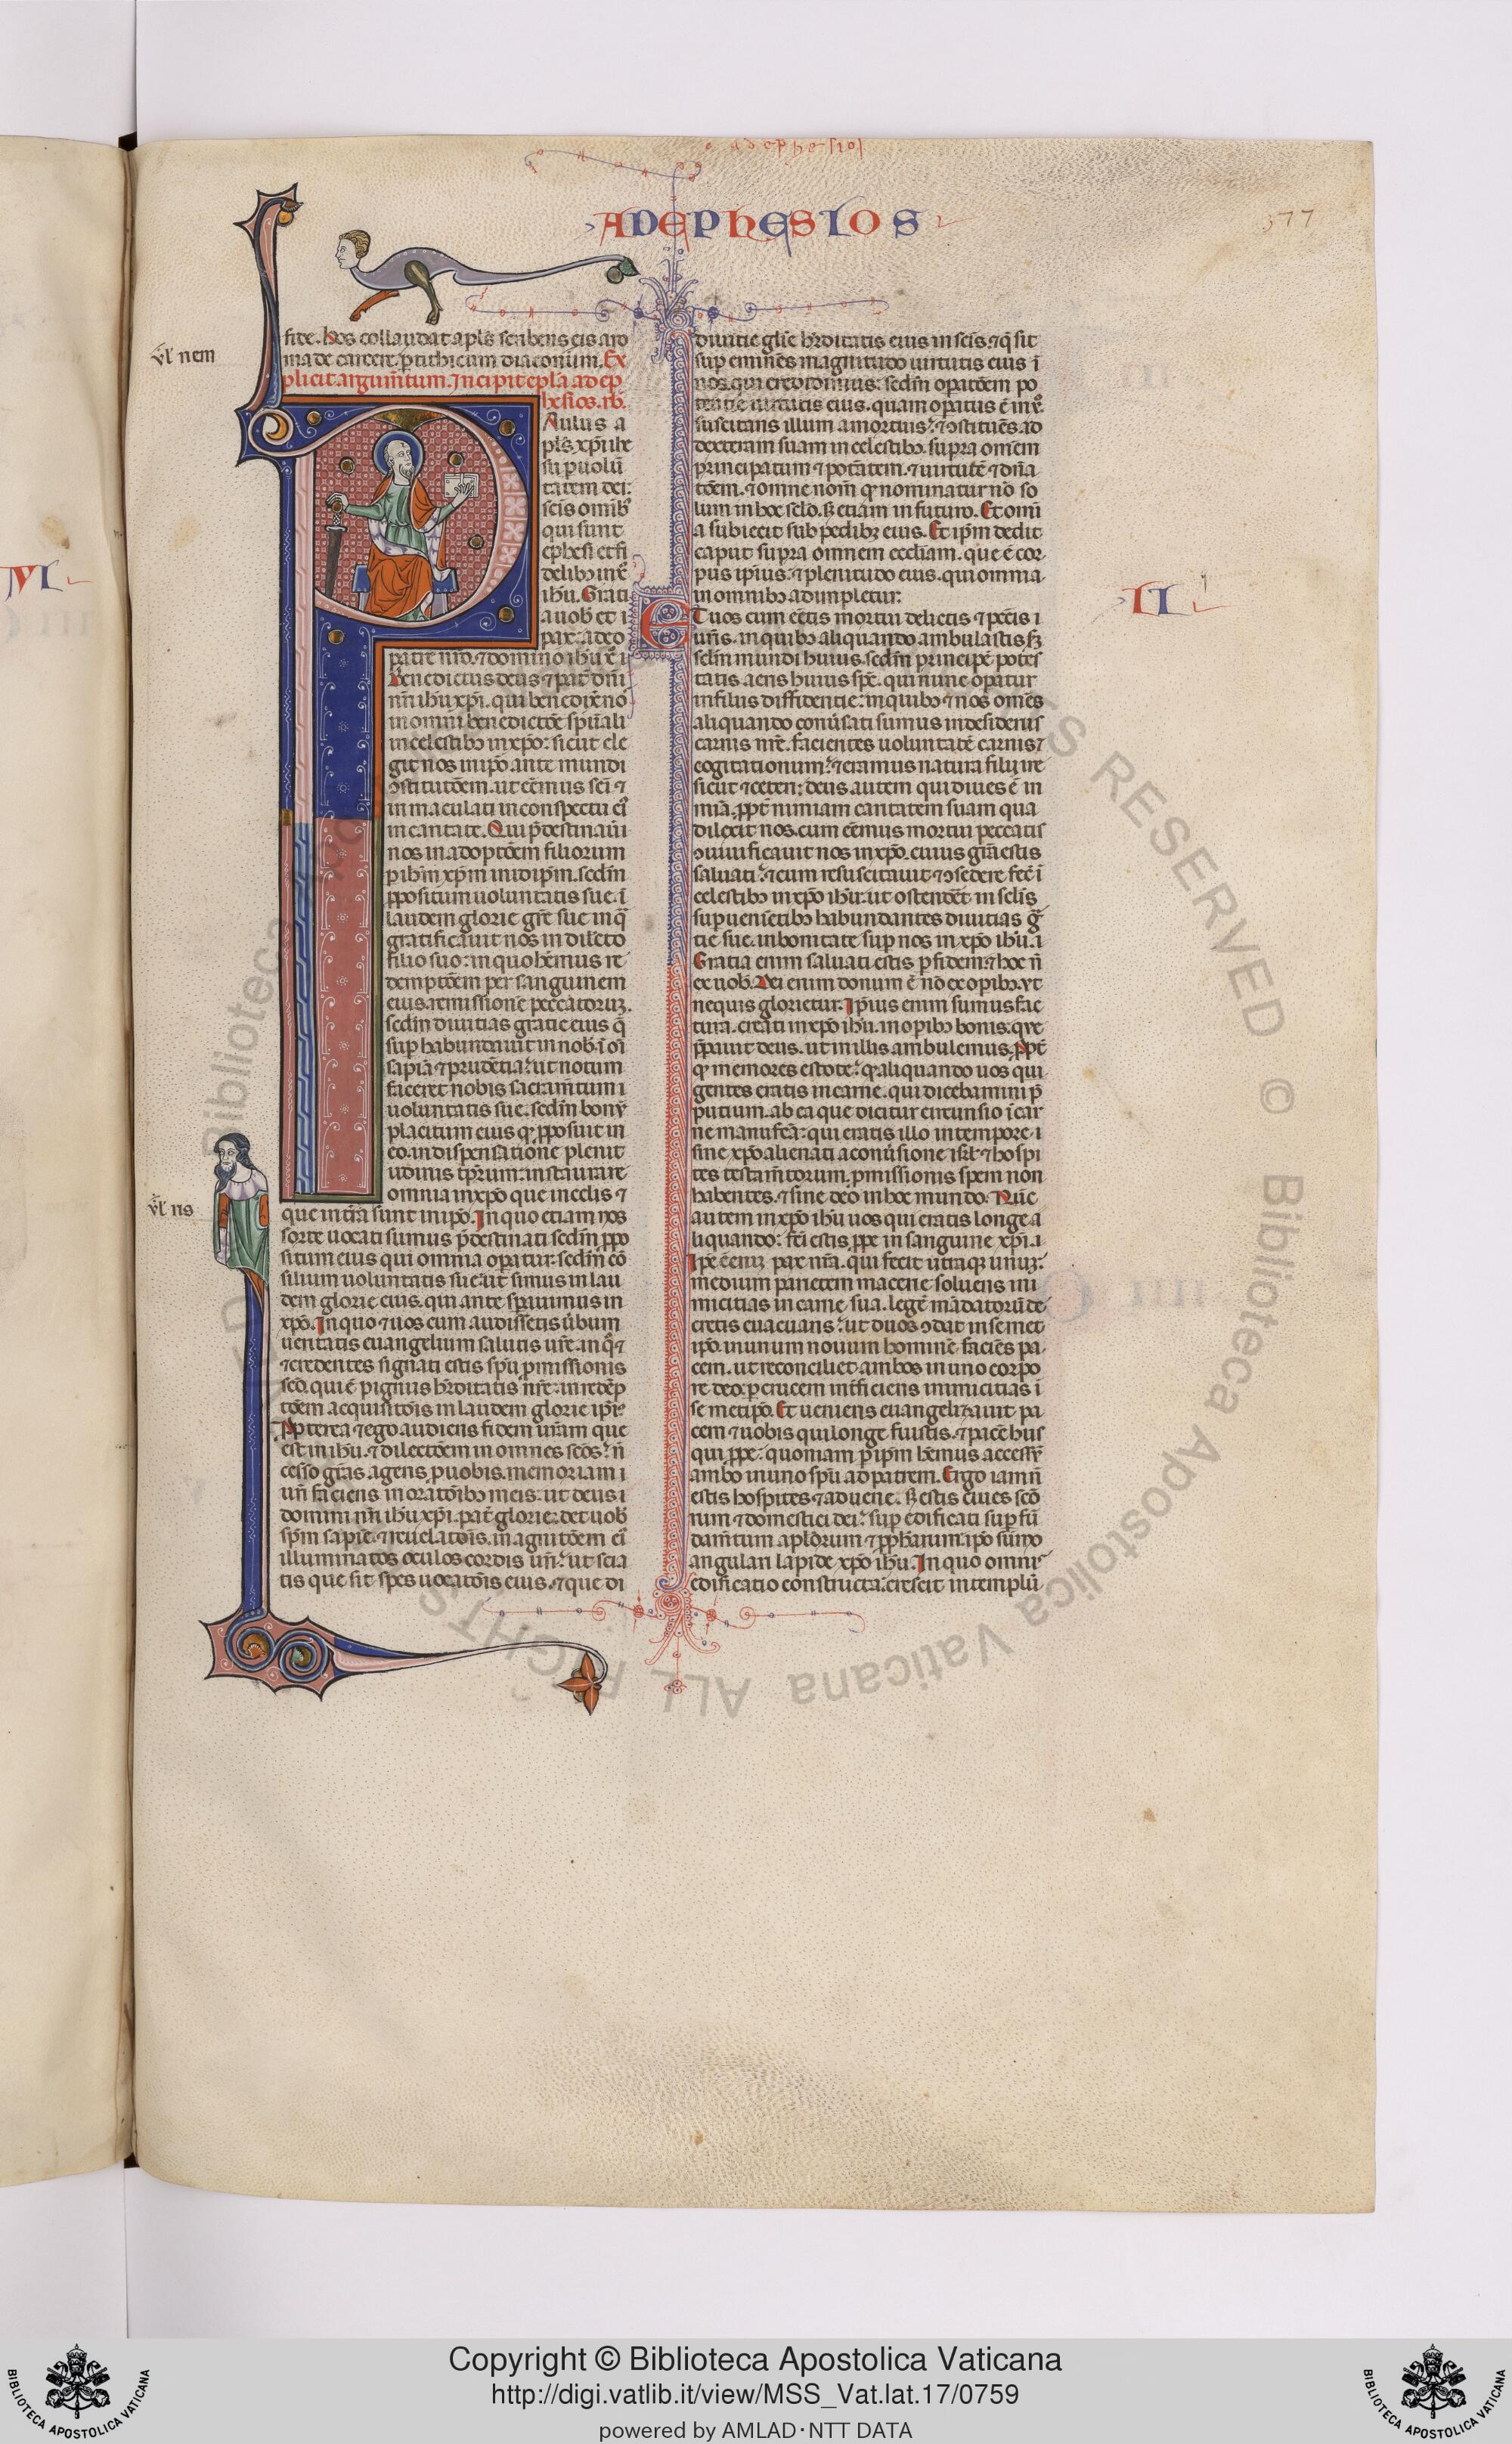 ad ephesios
AD EPHESIOS
377
fide. Hos collaudat apl's scribens eis a ro
ma de carcere. p tithicum diaconum. Ex
plicit argum̄tum. Incipit epl'a ad ep
hesios. rb.
vl' nem
PAulus a
pl's xp̄i ihe
su p uolū
tatem dei:
scīs omib'
qui sunt
ephesi et fi
delib; in xp̄o
ihū. Grati
a uob' et i
pax a deo
patre nr̄o. ⁊ domino ihū xp̄o i
Benedictus deus ⁊ pat' dn̄i
nr̄i ihū xp̄i. qui benedix̄ nos
in omni benedictōe spūali
in celestib; in xp̄o: sicut ele
git nos in ip̄o ante mundi
ꝯstitutōem. ut eēmus scī ⁊
in maculati in conspectu eī
in caritate. Qui p̄destinauit
nos in adoptōem filiorum
p ihm̄ xp̄m in id ip̄m. scdm̄
ppositum uoluntatis sue. i
laudem glorie gr̄e sue in qͣ
gratificauit nos in dilecto
filio suo: in quo hēmus re
demptōem per sanguinem
eius. remissionē peccatorum.
scdm̄ diuitias gratie eius q̄
sup habundauit in nob' ī oī
sapīa ⁊ prudētia: ut notum
faceret nobis sacram̄tum i
uoluntatis sue. scdm̄ bonū
placitum eius qͦ pposuit in
eo. in dispensatione plenit
udinis tp̄rum: instaurare
omnia in xp̄o que in celis ⁊
vl' ns
que in tr̄a sunt in ip̄o. In quo etiam nos
sorte uocati sumus p̄destinati scdm̄ ppo
situm eius qui omnia opatur: scdm̄ cō
silium uoluntatis sue: ut simus in lau
dem glorie eius. qui ante spauimus in
xp̄o. In quo ⁊ uos cum audissetis ūbum
ueritatis euangelium salutis ur̄e. in qͦ ⁊
⁊ credentes signati estis spū pmissionis
scō. qui ē pignus hr̄ditatis nr̄e: in redēp
tōem acquisitōis in laudem glorie ip̄i
Ppterea ⁊ ego audiens fidem ur̄am que
est in ihū. ⁊ dilectōem in omnes scōs: n̄
cesso gr̄as agens. p uobis. memoriam i
ur̄i faciens in oratōib; meis: ut deus i
domini nr̄i ihū xp̄i. pat' glorie: det uob'
spm̄ sapīe. ⁊ reuelatōis. in agnitōem eī
illuminatos oculos cordis ur̄i: ut scia
tis que sit spes uocatōis eius. ⁊ que di
diuitie glīe hr̄ditatis eius in scīs. ⁊ q̄ sit
sup eminēs magnitudo uirtutis eius ī
nos. qui credidimus: scdm̄ opatōem po
tentie uirtutis eius. quam opatus ē in xp̄o.
suscitans illum a mortuis: ⁊ ꝯstituēs ad
dexteram suam in celestib;. supra om̄em
principatum ⁊ potātem. ⁊ uirtutē ⁊ dn̄a
tōem. ⁊ omne nom̄ qͦ nominatur nō so
lum in hoc sclō. s; etiam in futuro. Et omī
a subiecit sub pedib; eius. Et ip̄m dedit
caput supra omnem eccliam. que ē cor
pus ip̄ius: ⁊ plenitudo eius. qui omnia.
in omnib; adimpletur:
II
ET uos cum eētis mortui delictis ⁊ pctīs i
ur̄is. in quib; aliquando ambulastis. s;
sclm̄ mundi huius. scdm̄ principē potes
tatis aeris huius spc̄. qui nunc opatur
in filius diffidentie: in quib; ⁊ nos omēs
aliquando conūsati sumus in desideriis
carnis nr̄e. facientes uoluntatē carnis ⁊
cogitationum: ⁊ eramus natura filij ire
sicut ⁊ ceteri: deus autem qui diues ē in
mīa. ppt' nimiam caritatem suam qua
dilexit nos. cum eēmus mortui peccatis
ꝯuiuificauit nos in xp̄o. cuius gr̄a estis
saluati: ⁊ cum resuscitauit ⁊ ꝯsedere fec̄ ī
celestib; in xp̄o ihū: ut ostendet' in sclīs
supuenīetib; habundantes diuitias gͣ
tie sue. in bonitate sup nos in xp̄o ihū. i
Gratia enim saluati estis p fidem. ⁊ hoc n̄
ex uob'. Dei enim donum ē nō ex opib;. vt
nequis glorietur. Ip̄ius enim sumus fac
tura. creati in xp̄o ihū. in opib; bonis. que
p̄pauit deus. ut in illis ambulemus. ppt'
qͦ memores estote: qͦ aliquando uos qui
gentes eratis in carne. qui dicebamini p̄
putium. ab ea que dicitur circūnsio ī car
ne manufc̄a: qui eratis illo in tempore. i
sine xp̄o alienati a conūsione isrl' ⁊ hospi
tes testam̄torum. pmissionis spem non
habentes. ⁊ sine deo in hoc mundo. Nūc
autem in xp̄o ihū uos qui eratis longe a
liquando: fcī estis ppe in sanguine xp̄i. i
Ip̄e ē eni; pax nr̄a. qui fecit utraq; unum:
medium parietem macerie soluens ini
micitias in carne sua. legē mādatorū de
cretis euacuans: ut duos ꝯdat in semet
ip̄o. in unum nouum hominē faciēs pa
cem. ut reconciliet ambos in uno corpo
re deo. p crucem int'ficiens inimicitias i
se metip̄o. Et ueniens euangelizauit pa
cem ⁊ uobis qui longe fuistis. ⁊ pacē hiis
qui ppe. quoniam p ip̄m hēmus accessū
ambo in uno spū ad patrem. Ergo iam n̄
estis hospites ⁊ aduene. s; estis ciues scō
rum ⁊ domestici dei: sup edificati sup fū
dam̄tum aplorum ⁊ pphetarum. ip̄o sūmo
angulari lapide xp̄o ihū. In quo omnis
edificatio constructa: crescit in templū
VI
Biblioteca Apostolica Vaticana ALL RIGHTS RESERVED © Biblioteca Apostolica Vaticana
Copyright © Biblioteca Apostolica Vaticana
http://digi.vatlib.it/view/MSS_Vat.lat.17/0759
powered by AMLAD·NTT DATA
BIBLIOTECA APOSTOLICA VATICANA
BIBLIOTECA APOSTOLICA VATICANA